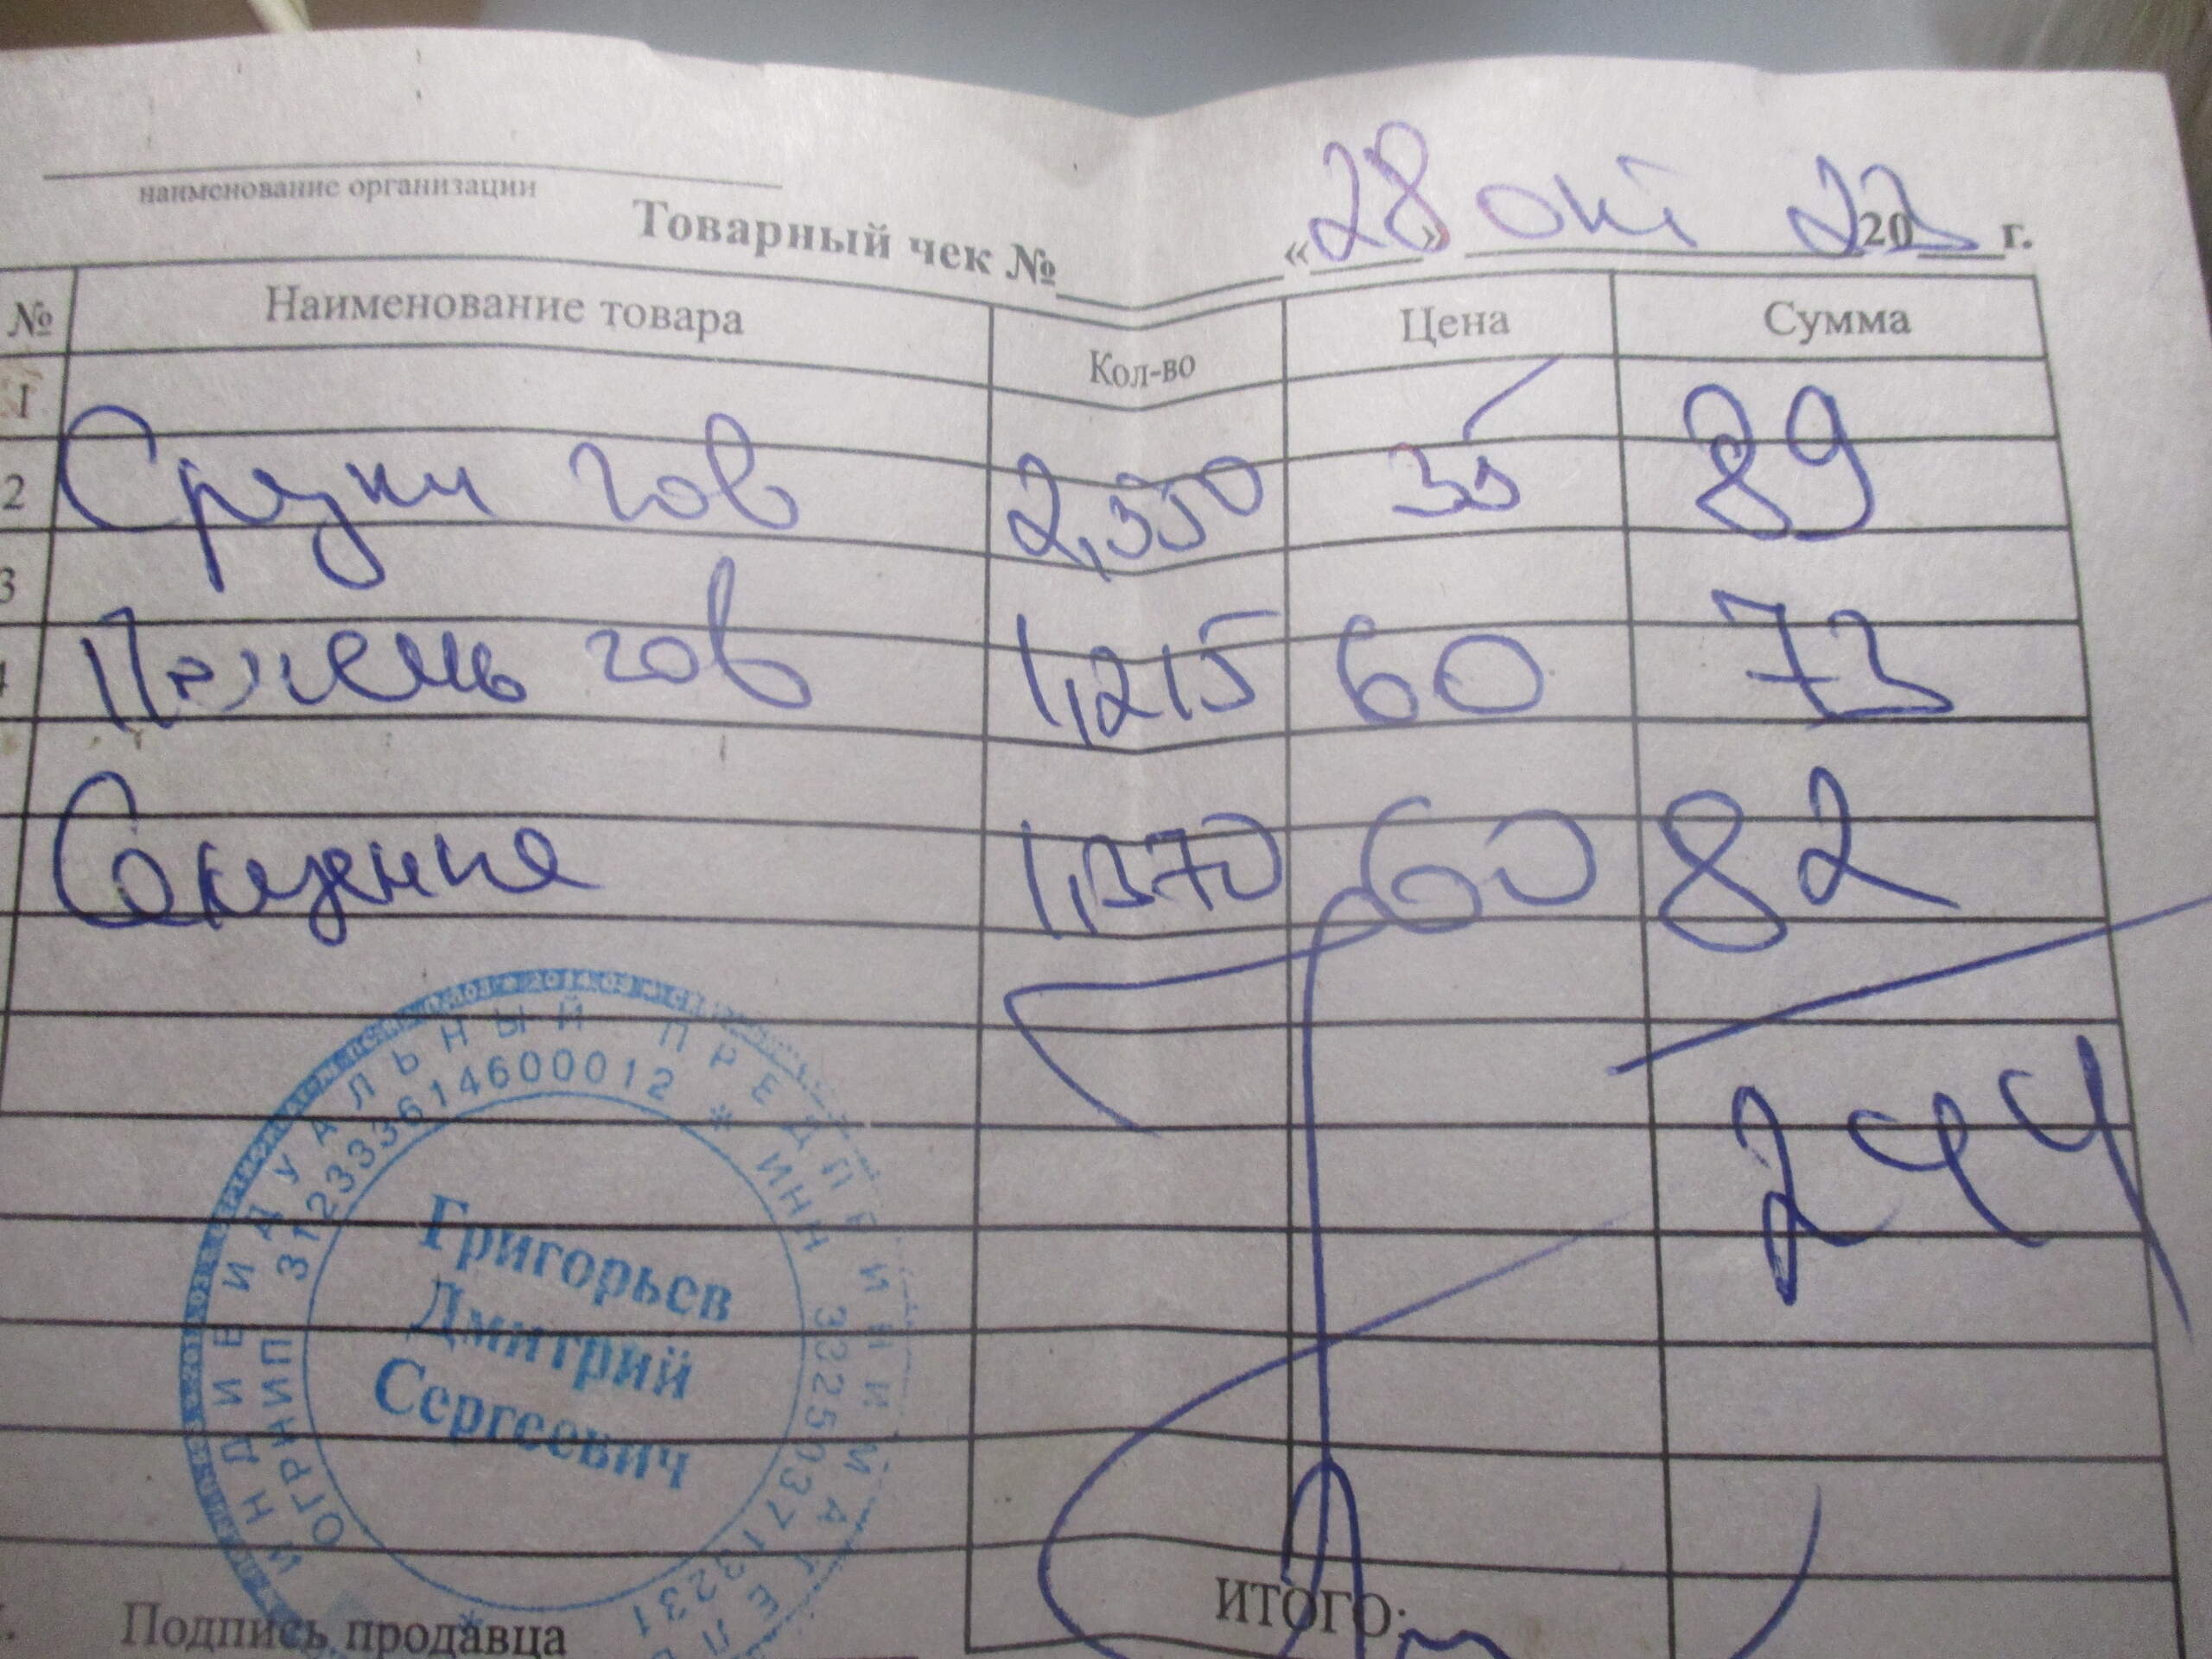 наименование организации
Товарный чек № «28» окт 2023 г.
№ Наименование товара Кол-во Цена Сумма
1
2 Срезки гов 2,550 35 89
3
4 Печень гов 1,215 60 73
1,370 60 82
244
ИНДИВИДУАЛЬНЫЙ ПРЕДПРИНИМАТЕЛЬ
ОГРНИП 312333614600012 * ИНН 332503713231 *
Григорьев
Дмитрий
Сергеевич
ИТОГО:
Подпись продавца